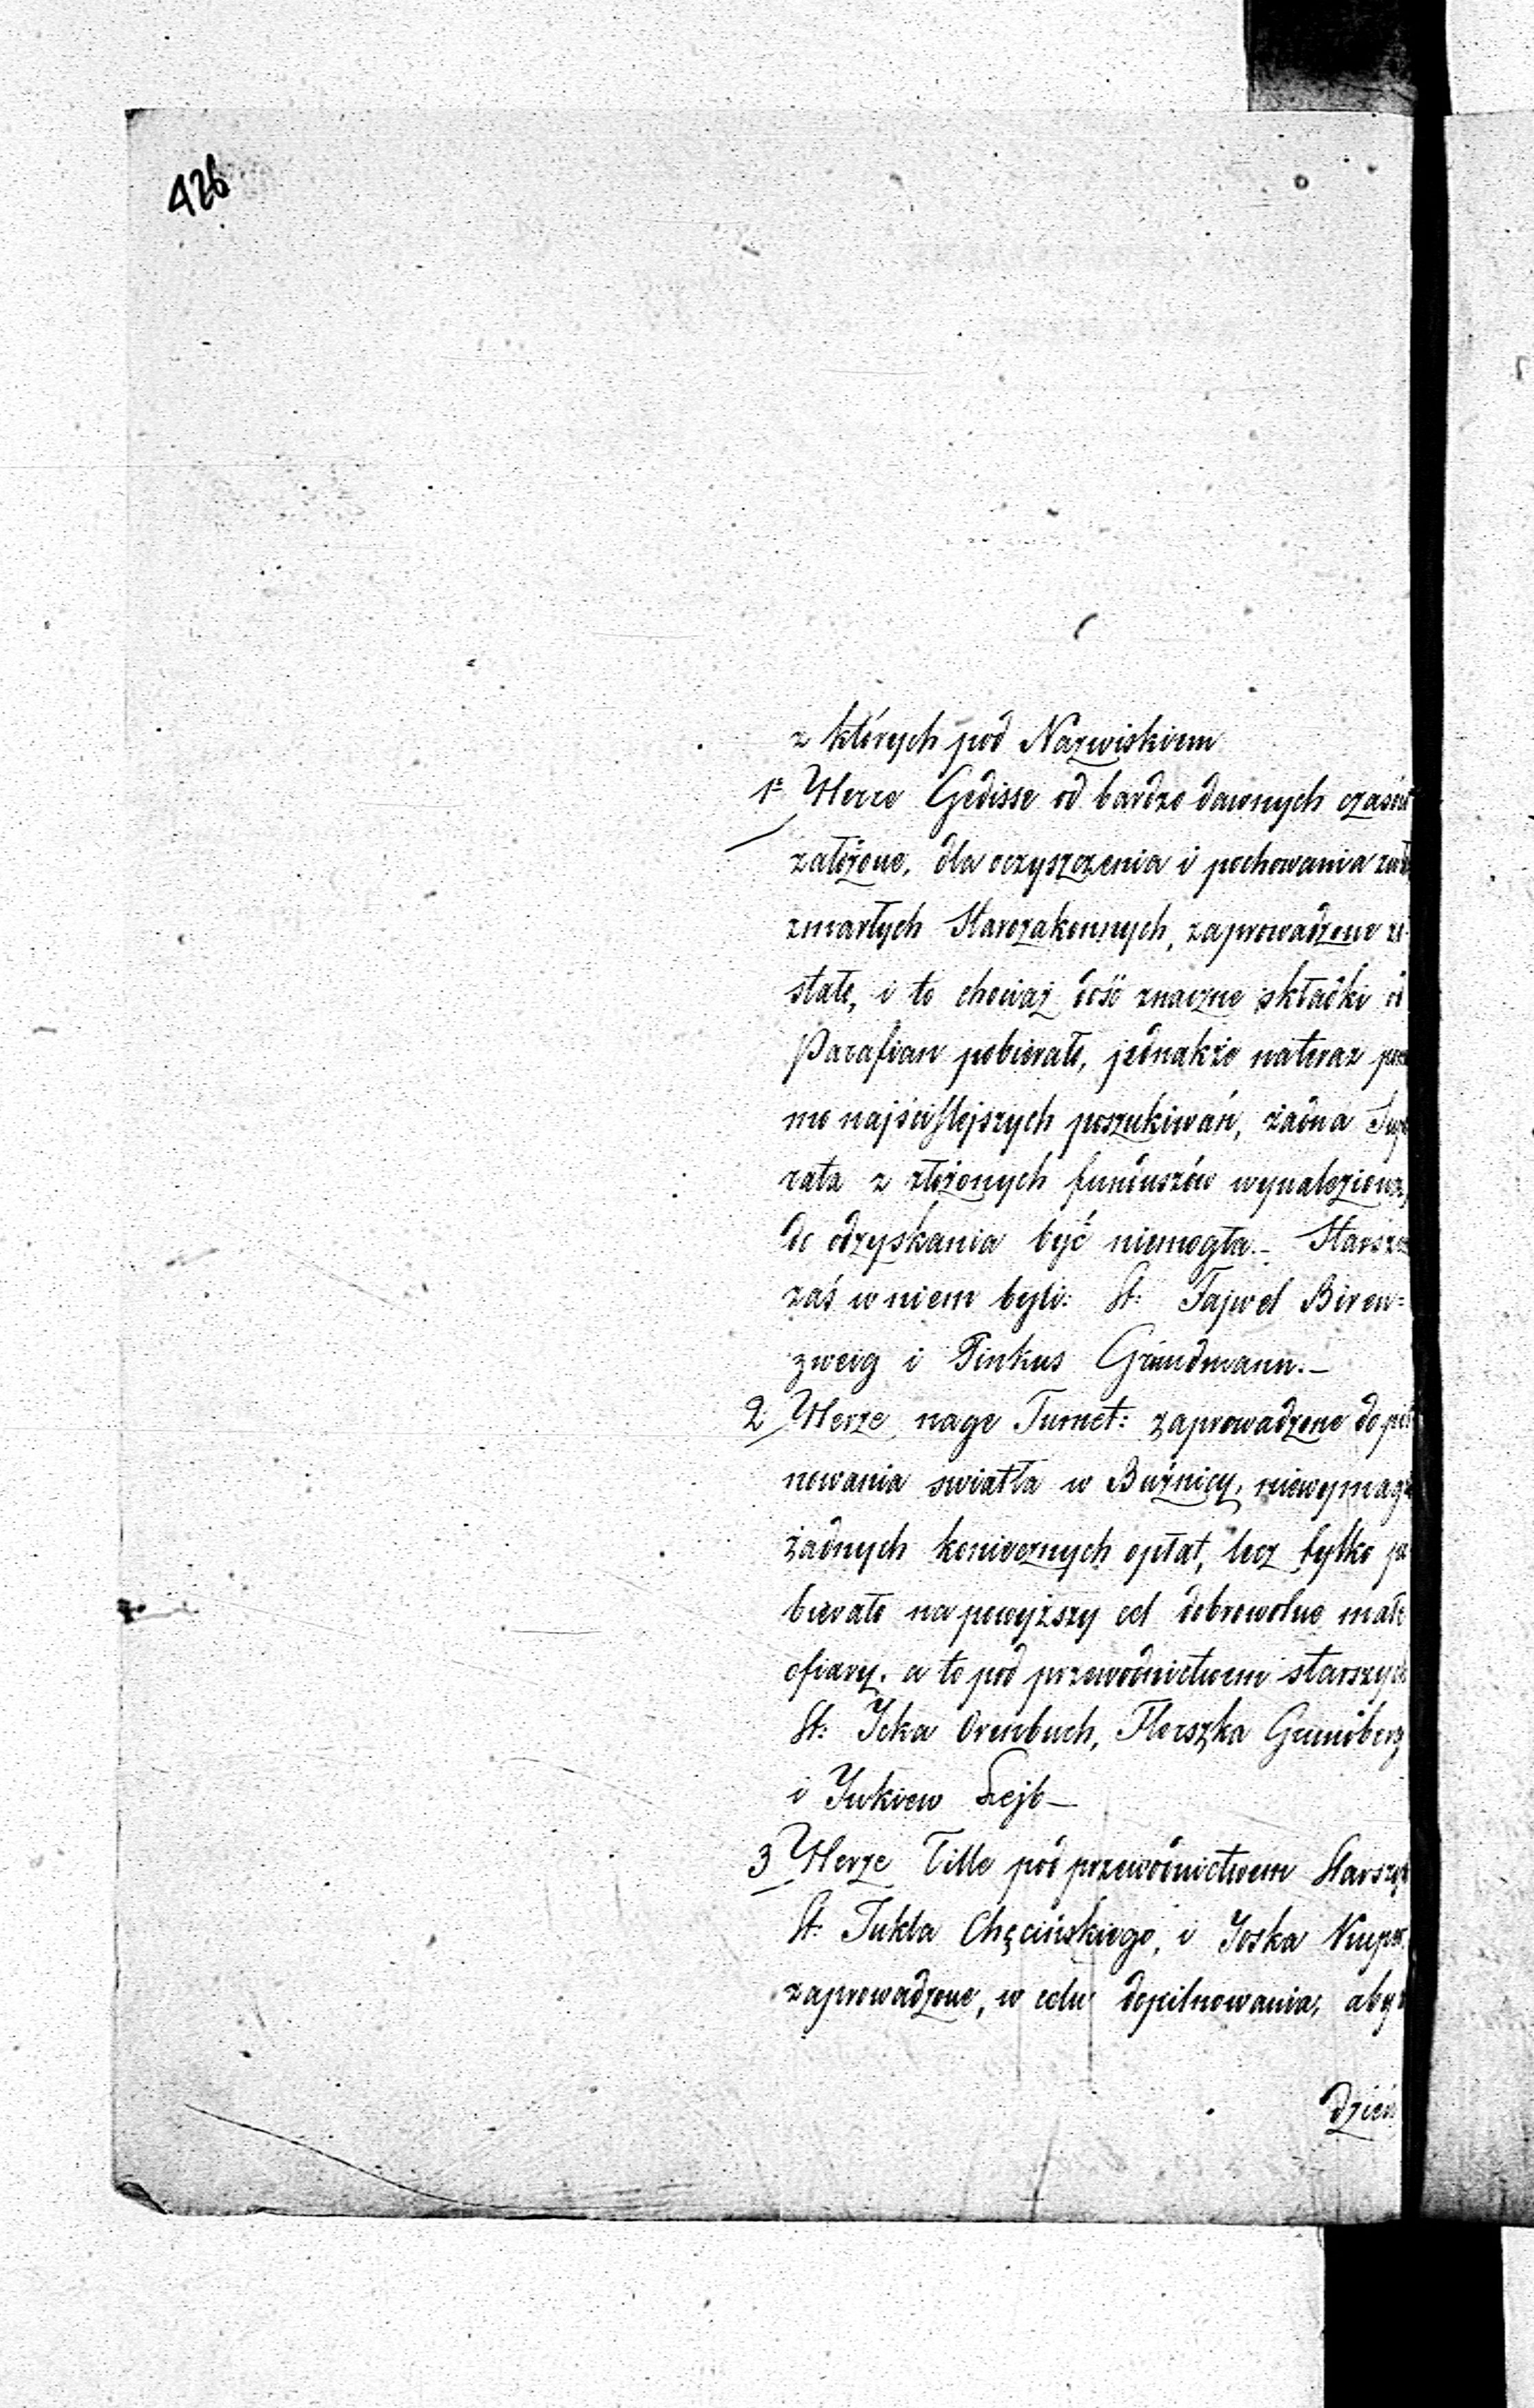 426
z których pod Nazwiskiem
1º Herre Gedisse od bardzo dawnych czasów
założone, dla oczyszczenia i pochowania
zmarłych Starozakonnych, zaprowadzone zo
stało, i to chociaż dość znaczne składki od
Parafian pobierało, jednakże nateraz
mo najściślejszych poszukiwań, żadna
rata z złożonych funduszów wynaleziona,
do odzyskania być niemogła.–
zaś w niem byli: St: Fajwel Biren=
zweig i Pinkus Gründmann.–
2 Herze nage Tumet: zaprowadzone do
nowania swiatła w Bużnicy, niewymaga
żadnych koniecznych opłat, lecz tylko po
bierało na powyższy cel dobrowolne małe
ofiary, a to pod przewodnictwem starszych
St: Icka Orenbuch, Herszka Grunberg
i Jukiew Lejb –
3 Herze Tille pod przewodnictwem Starszych
St: Jukla Chęcińskiego, i Joska
zaprowadzone, w celu dopilnowania, aby
dzień